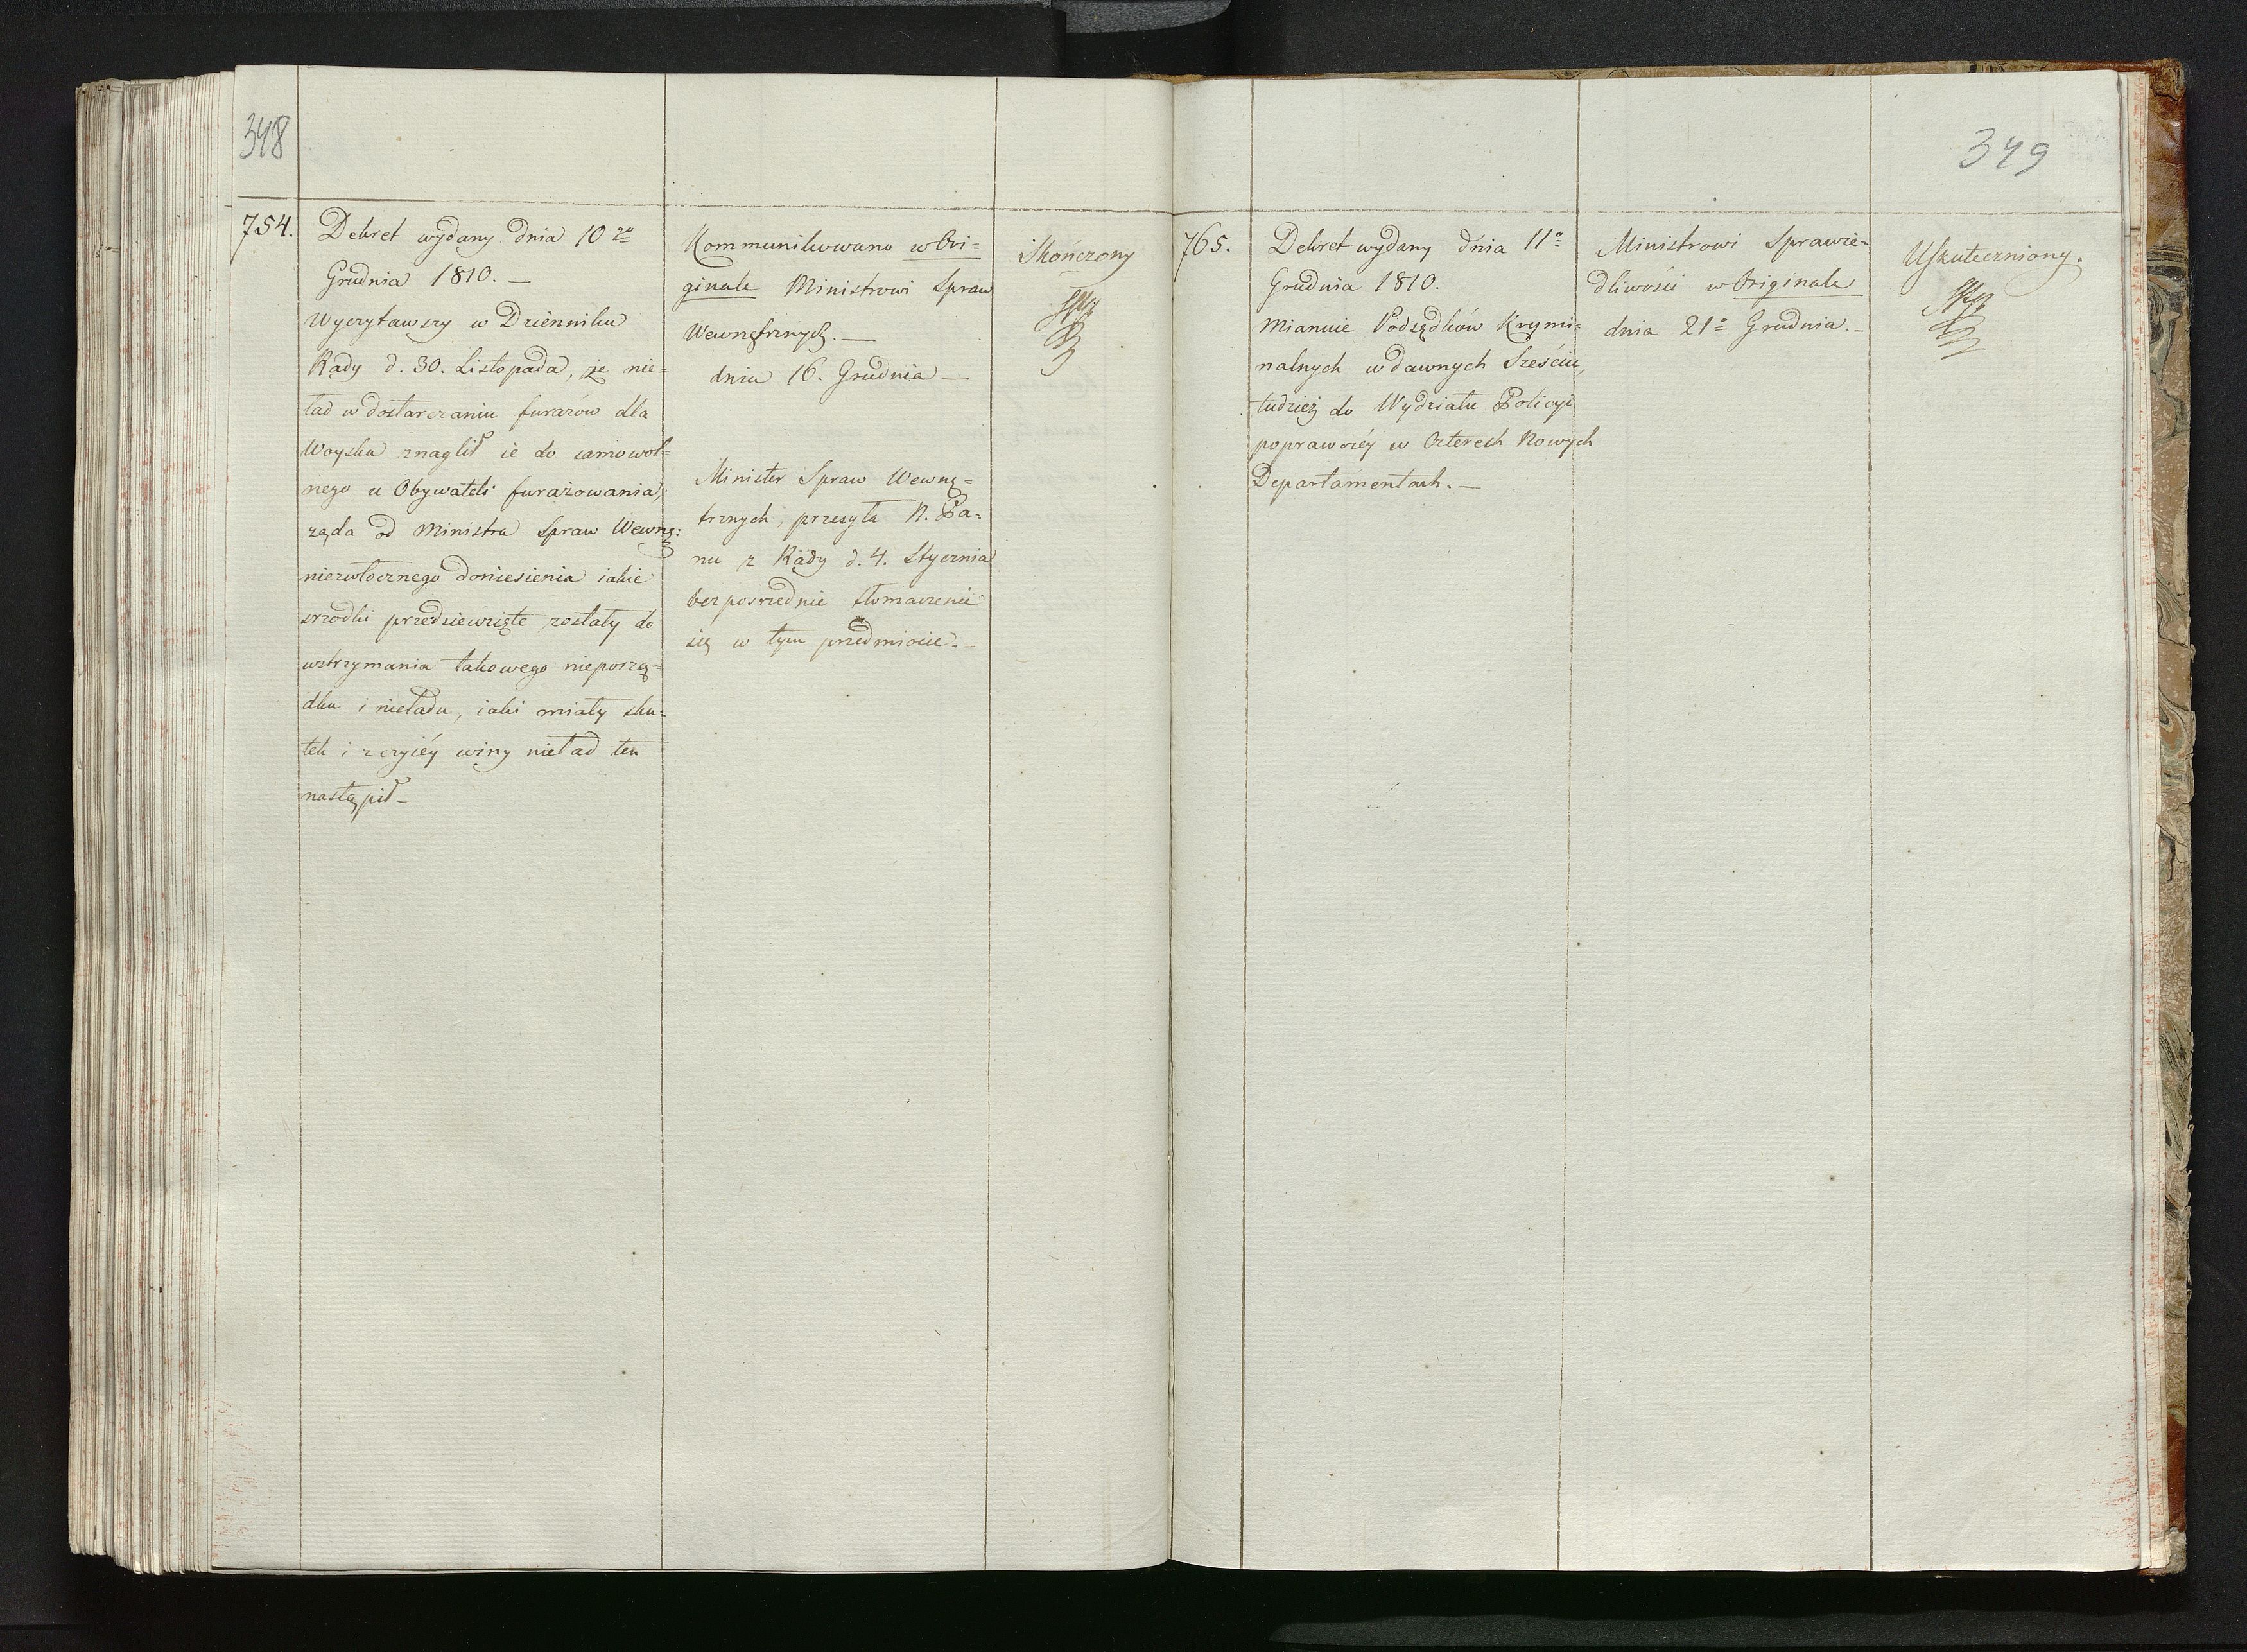 348
754.
Dekret wydany dnia 10 го
Grudnia 1810. —
Wyczytawszy w Dzienniku
Rady d. 30. Listopada, że nie=
ład w dostarczaniu furażów dla
Woyska znaglił ie do samowol=
nego u Obywateli furażowania;
żąda od Ministra Spraw Wewnę:
niezwłocznego doniesienia iakie
srzodki przedsiewzięte zostały do
wstrzymania takowego nieporzą=
dku i nieładu, iaki miały sku=
tek i z czyiéy winy nieład ten
nastąpił —
Kommunikowano w Ori=
ginale Ministrowi Spraw
Wewnętrznych. —
dnia 16. Grudnia —
Minister Spraw Wewnę=
trznych, przesyła N. Pa=
nu z Rady d. 4. Stycznia
bezposrzednie tłomaczenie
się w tym przedmiocie. —
Skończony
349
765.
Dekret wydany dnia 11º
Grudnia 1810.
Mianuie Podsędków Krymi=
nalnych w dawnych Sześciu,
tudzież do Wydziału Policyi
poprawczéy w Czterech Nowych
Departamentach. —
Ministrowi Sprawie=
dliwości w Originale
dnia 21º Grudnia. —
Uskuteczniony.